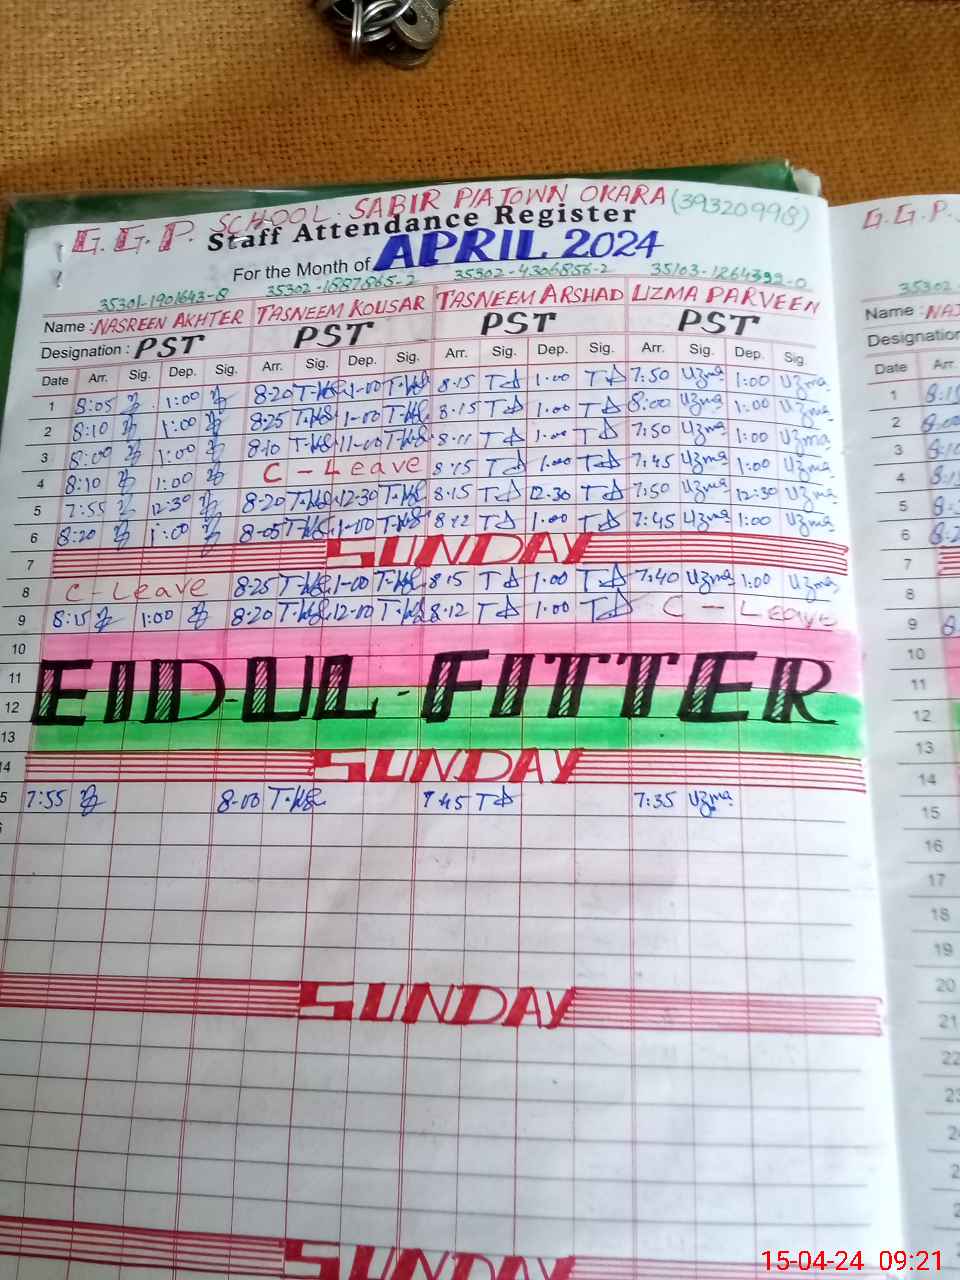 G.G.P. SCHOOL. SABIR PIA TOWN OKARA (39320998)
Staff Attendance Register
For the Month of APRIL 2024
35301-1901643-8 35302-1887865-2 35302-4306856-2 35103-1264392-0
Name : NASREEN AKHTER TASNEEM KOUSAR TASNEEM ARSHAD UZMA PARVEEN
Designation : PST PST PST PST
Date Arr. Sig. Dep. Sig. Arr. Sig. Dep. Sig. Arr. Sig. Dep. Sig. Arr. Sig. Dep. Sig.
1 8:05 1:00 8-20 1-00 8.15 1.00 7:50 Uzma 1:00 Uzma
2 8:10 1:00 8-25 1-00 8.15 1.00 8:00 Uzma 1:00 Uzma
3 8:00 1:00 8-10 1-00 8.11 1.00 7:50 Uzma 1:00 Uzma
4 8:10 1:00 C - Leave 8.15 1.00 7:45 Uzma 1:00 Uzma
5 7:55 12:30 8-20 12-30 8.15 12.30 7:50 Uzma 12:30 Uzma
6 8:20 1:00 8-05 1-00 8.12 1.00 7:45 Uzma 1:00 Uzma
7 SUNDAY
8 C - Leave 8-25 1-00 8.15 1.00 7:40 Uzma 1:00 Uzma
9 8:15 1:00 8-20 8.12 1.00 C - Leave
10
11 EID-UL-FITTER
12
13
14 SUNDAY
5 7:55 8-00 7.45 7:35 Uzma
SUNDAY
SUNDAY
G.G.P.
35302
Name :
Designation
Date Arr.
1
2
3
4
5
6
7
8
9
10
11
12
13
14
15
16
17
18
19
20
21
22
15-04-24 09:21